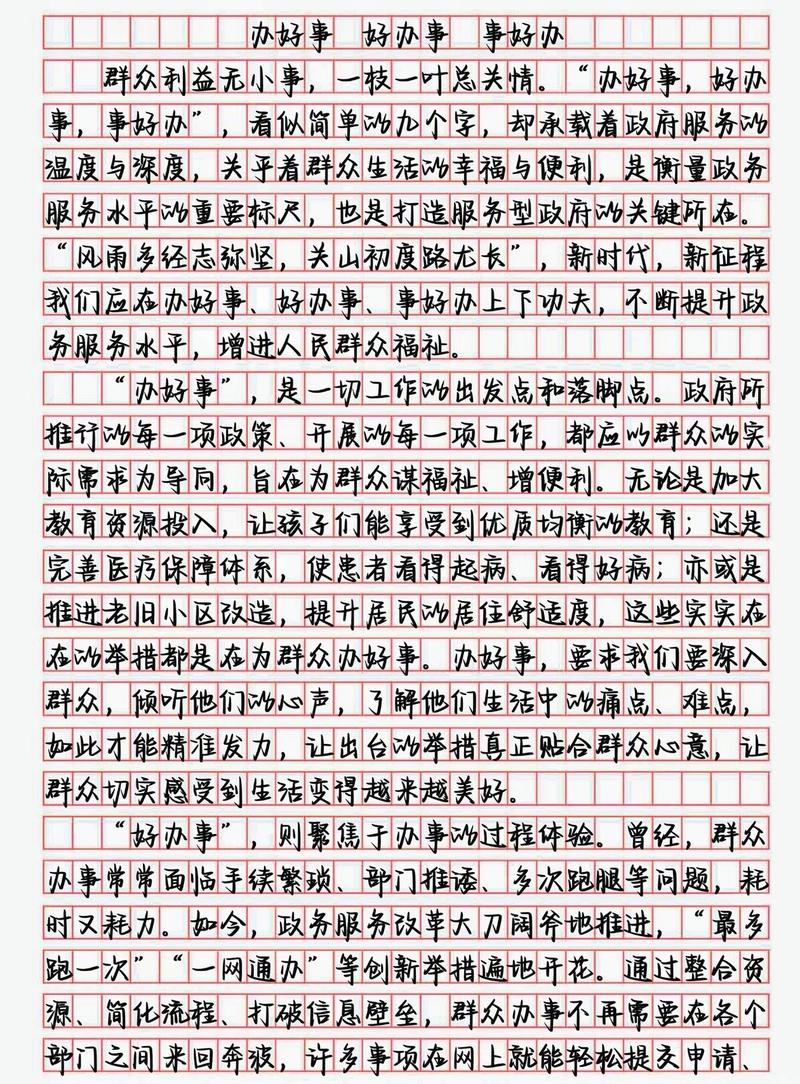 办好事 好办事 事好办
群众利益无小事，一枝一叶总关情。“办好事，好办
事，事好办”，看似简单的九个字，却承载着政府服务的
温度与深度，关乎着群众生活的幸福与便利，是衡量政务
服务水平的重要标尺，也是打造服务型政府的关键所在。
“风雨多经志弥坚，关山初度路尤长”，新时代，新征程
我们应在办好事、好办事、事好办上下功夫，不断提升政
务服务水平，增进人民群众福祉。
“办好事”，是一切工作的出发点和落脚点。政府所
推行的每一项政策、开展的每一项工作，都应以群众的实
际需求为导向，旨在为群众谋福祉、增便利。无论是加大
教育资源投入，让孩子们能享受到优质均衡的教育；还是
完善医疗保障体系，使患者看得起病、看得好病；亦或是
推进老旧小区改造，提升居民的居住舒适度，这些实实在
在的举措都是在为群众办好事。办好事，要求我们要深入
群众，倾听他们的心声，了解他们生活中的痛点、难点，
如此才能精准发力，让出台的举措真正贴合群众心意，让
群众切实感受到生活变得越来越美好。
“好办事”，则聚焦于办事的过程体验。曾经，群众
办事常常面临手续繁琐、部门推诿、多次跑腿等问题，耗
时又耗力。如今，政务服务改革大刀阔斧地推进，“最多
跑一次”“一网通办”等创新举措遍地开花。通过整合资
源、简化流程、打破信息壁垒，群众办事不再需要在各个
部门之间来回奔波，许多事项在网上就能轻松提交申请、